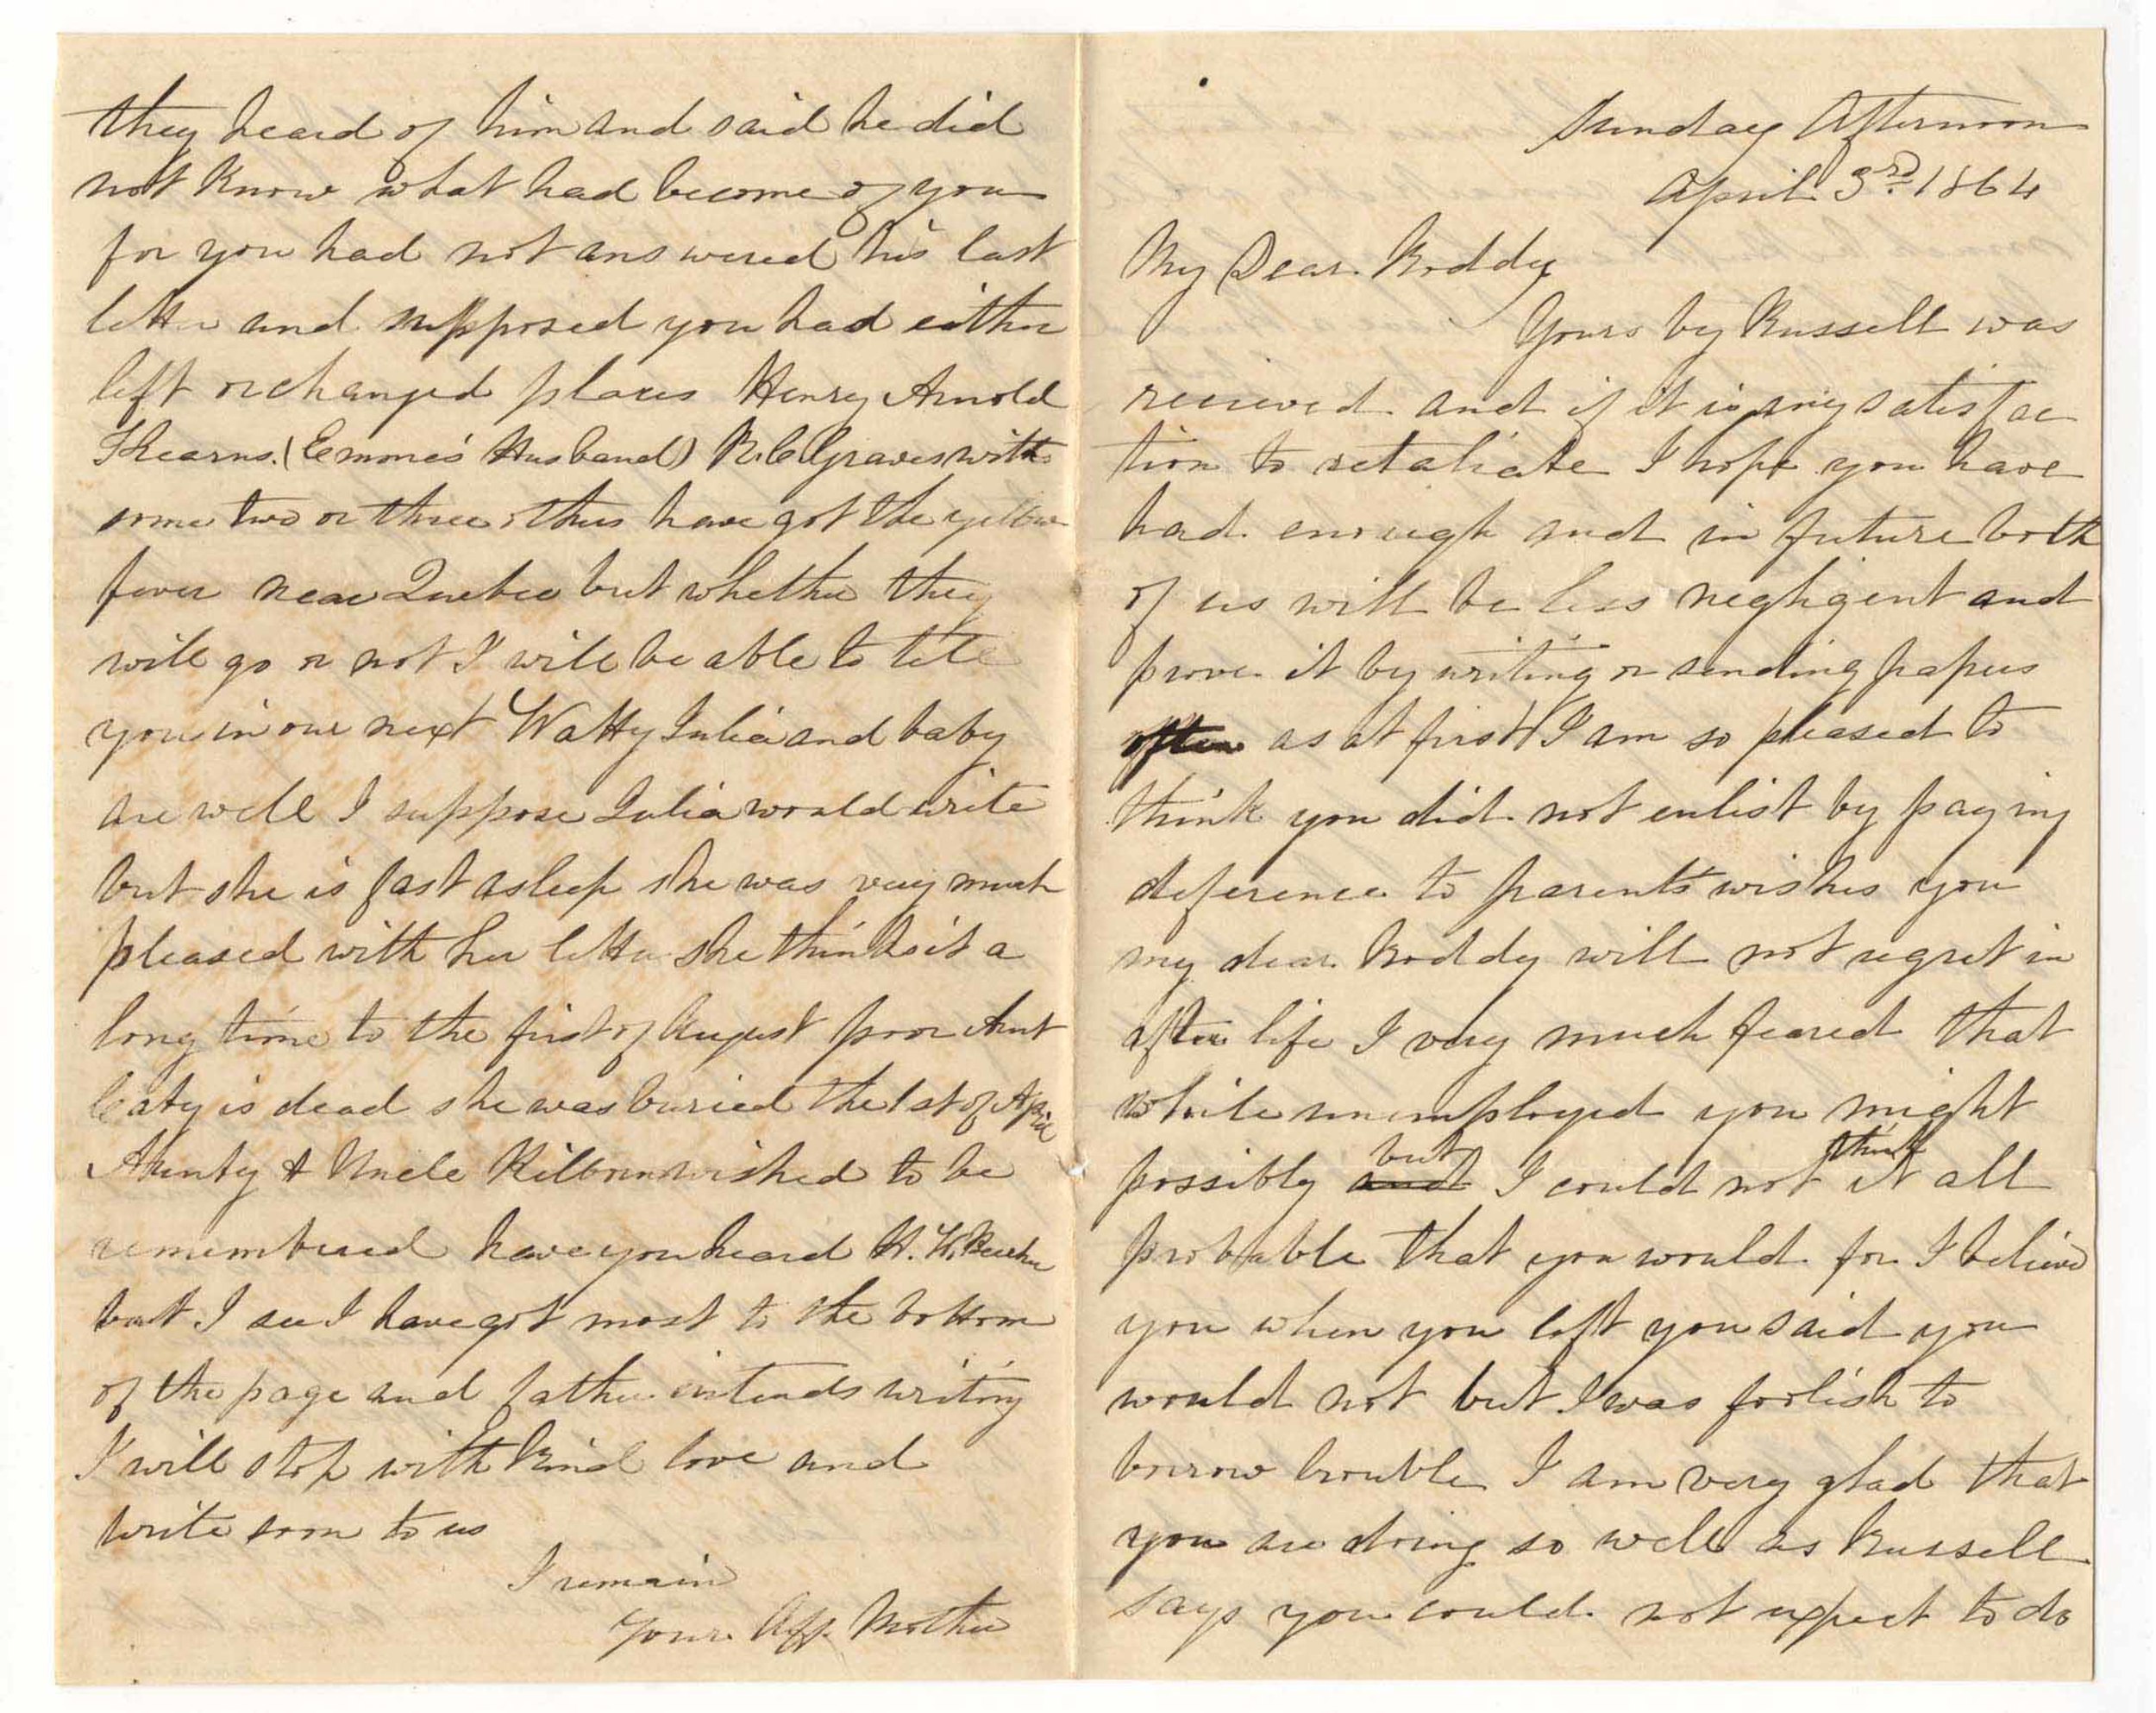 Sunday Afternoon
April 3rd 1864
My Dear Roddy
Yours by Russell was
recieved and if it is any satisfac
tion to retaliate I hope you have
had enough and in future both
of us will be less negligent and
prove it by writing or sending papers
often as at first I am so pleased to
think you did not enlist by paying
deference to parents wishes you
my dear Roddy will not regret in
after life I very much feared that
while unemployed you might
possibly and but I could not think it all
probable that you would for I believe
you when you left you said you
would not but I was foolish to
borrow trouble I am very glad that
you are doing so well as Russell
says you could not expect to do
they heard of him and said he did
not know what had become of you
for you had not answered his last
letter and supposed you had either
left or changed places Henry Arnold
(Emmie's Husband) R. C. Graves with
some two or three others have got the yellow
fever near Quebec but whether they
will go or not I will be able to tell
you in our next Watty Julia and baby
are well I suppose Julia would write
but she is fast asleep she was very much
pleased with her letter she thinks it a
long time to the first of August poor Aunt
Caty is dead she was buried the 1st of April
Aunty & Uncle Kilborn wished to be
remembered have you heard H. W.
but I see I have got most to the bottom
of the page and father intends writing
I will stop with kind love and
write soon to us
I remain
Your Aff. Mother